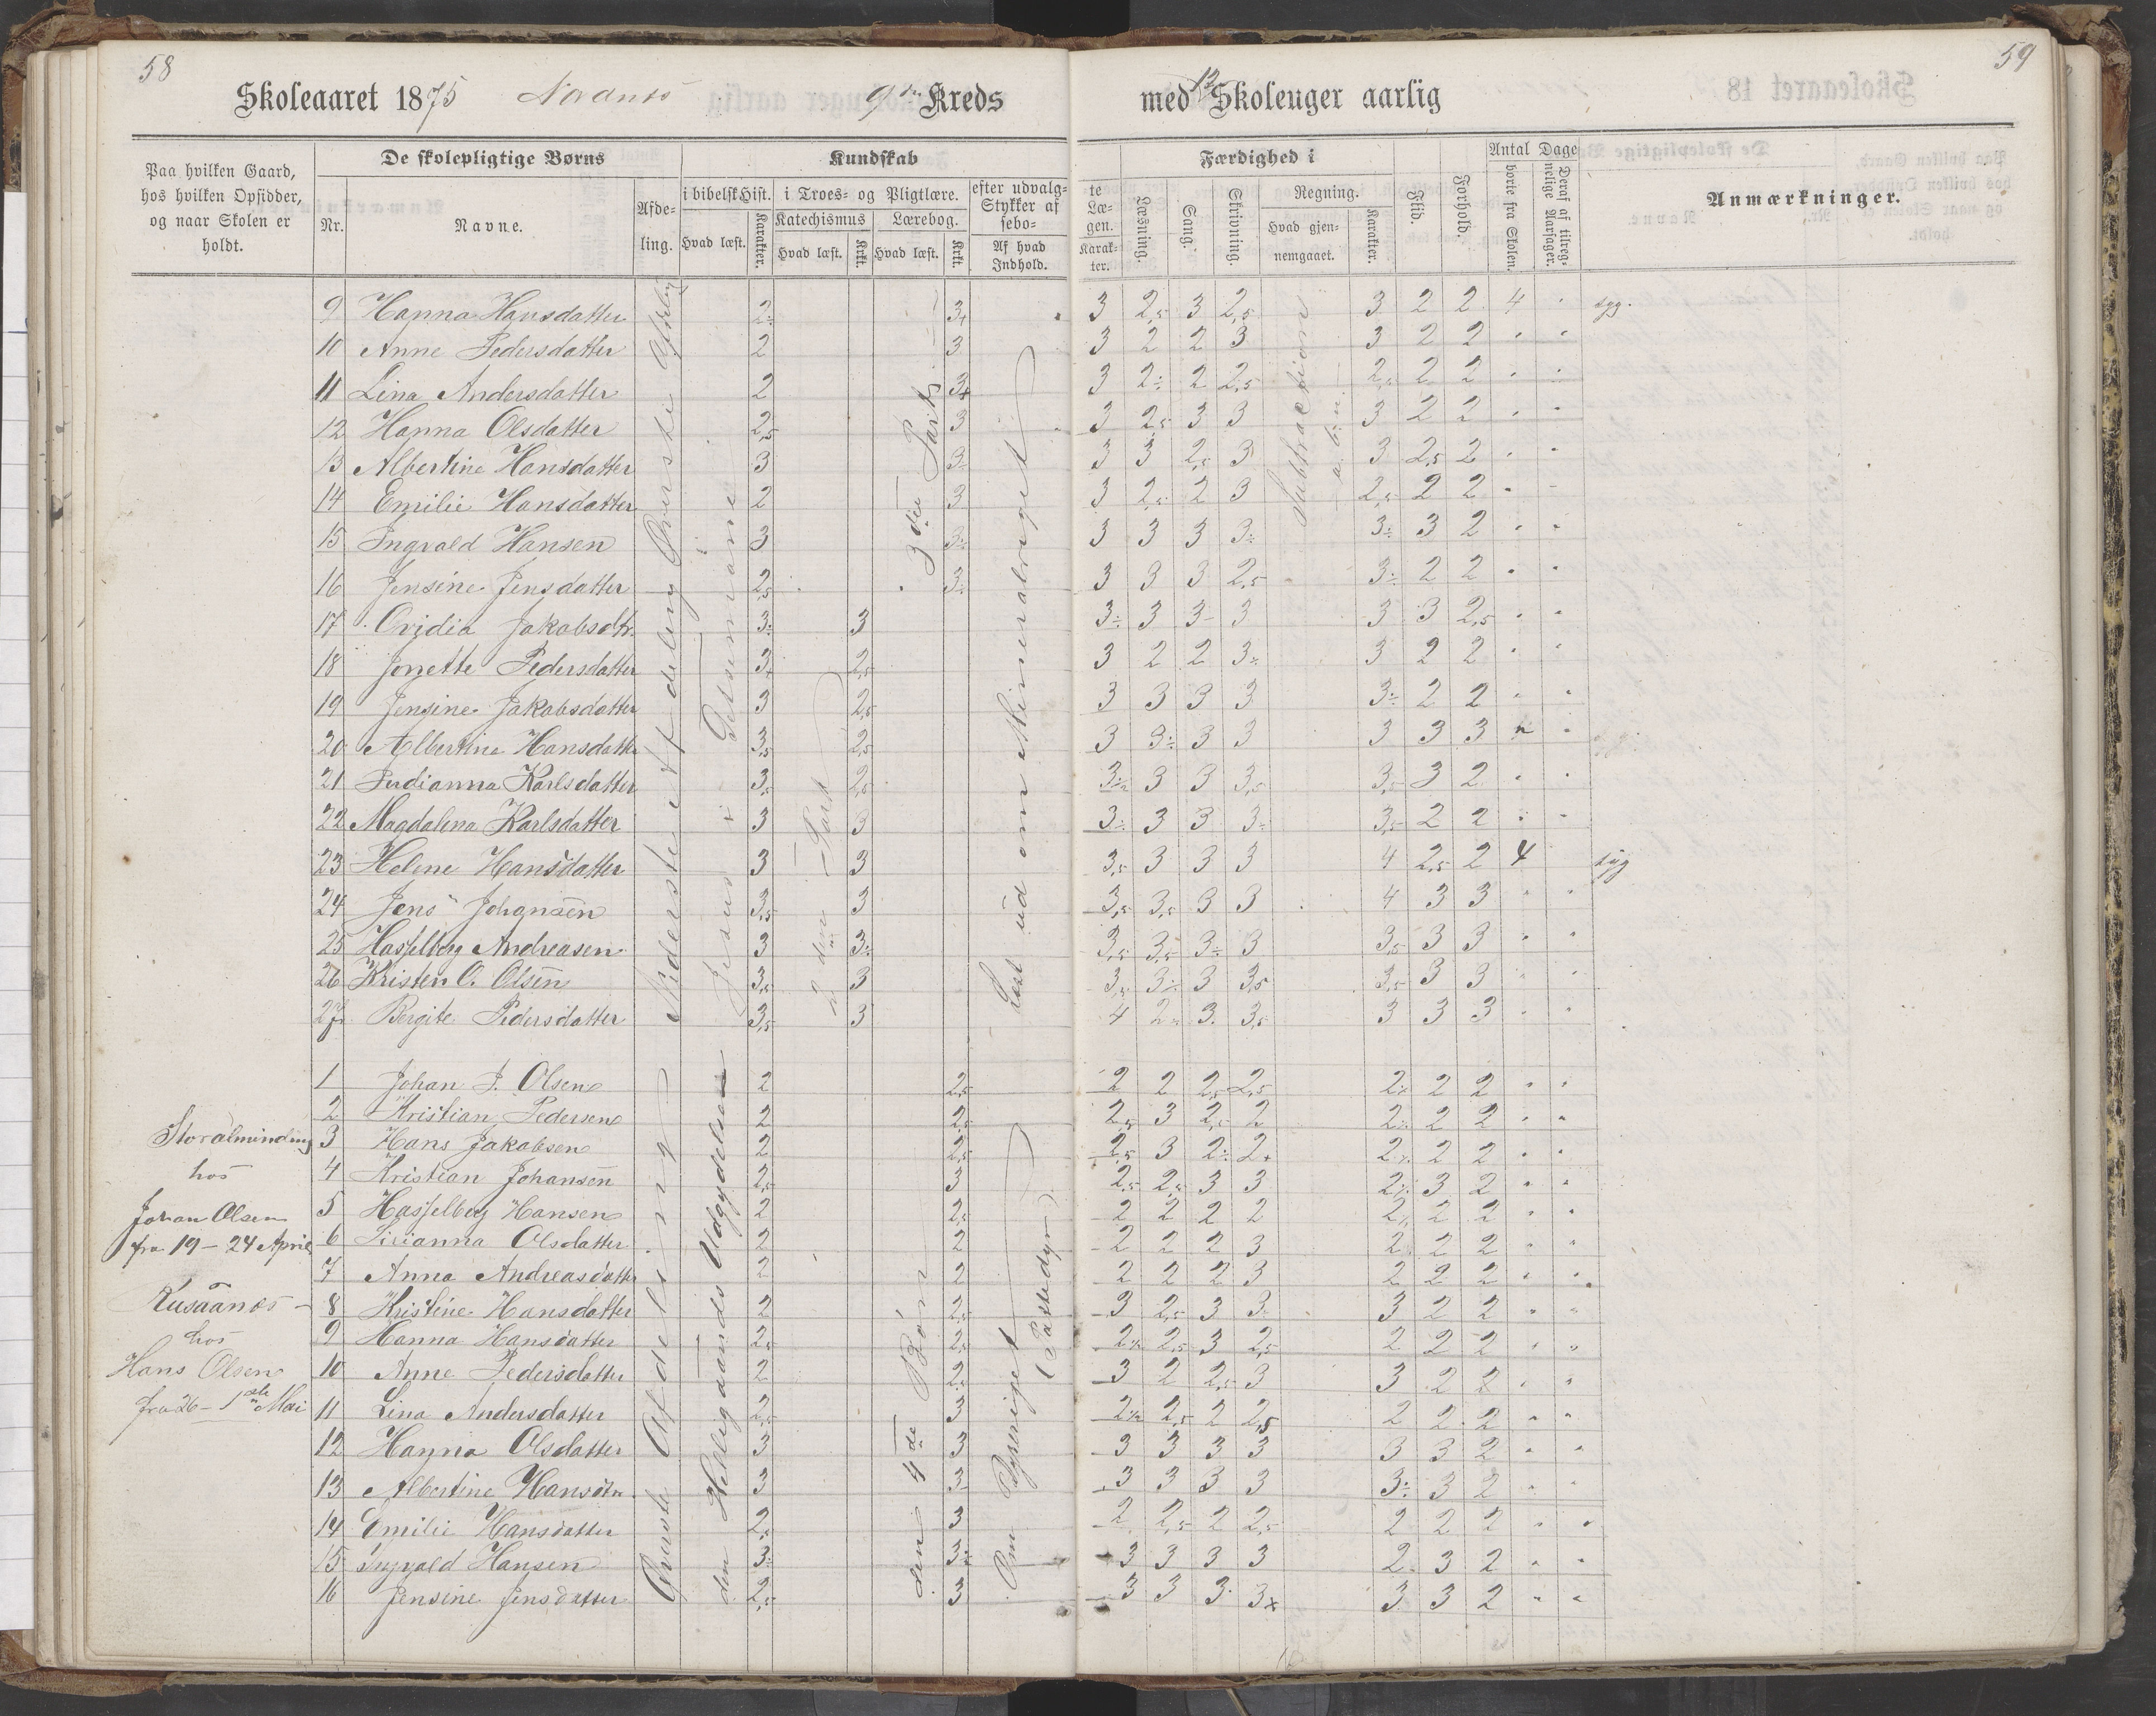 58
59
Skoleaaret 1875 9de Kreds med 12 Skoleuger aarlig
Paa hvilken Gaard, hos hvilken Opsidder, og naar Skolen er holdt.
De skolepligtige Børns
Nr.
Navne.
Afdeling.
Kundskab
i bibelsk Hist.
Hvad læst.
Karakter.
i Troes- og Pligtlære.
Katechismus
Hvad læst.
Krkt.
Lærebog.
Hvad læst.
Krkt.
efter udvalgte Stykker af Læsebogen.
Af hvad Indhold.
Karakter.
Færdighed i
Læsning.
Sang.
Skrivning.
Regning.
Hvad gjennemgaaet.
Karakter.
Flid.
Forhold.
Antal Dage
borte fra Skolen.
Deraf af tilregnelige Aarsager.
Anmærkninger.
9 Hanna Hansdatter 2 3+ 3 2,5 3 2,5 3 2 2 4 syg.
10 Anne Pedersdatter 2 3 3 2 2 3 3 2 2
11 Lina Andersdatter 2 3+ 3 2 2 2,5 2,5 2 2
12 Hanna Olsdatter 2,5 3 3 2,5 3 3 3 2 2
13 Albertine Hansdatter 3 3 3 3 2,5 3 3 2,5 2
14 Emilie Hansdatter 2 3 3 2,5 2 3 2,5 2 2
15 Ingvald Hansen 3 3÷ 3 3 3 3÷ 3÷ 3 2
16 Jensine Jensdatter 2,5 3÷ 3 3 3 2,5 3÷ 2 2
17 Ovidia Jakobsdtr. 3÷ 3 3÷ 3 3 3 3 3 2,5
18 Jonette Pedersdatter 3+ 2,5 3 2 2 3÷ 3 2 2
19 Jensine Jakobsdatter 3 2,5 3 3 3 3 3÷ 2 2
20 Albertine Hansdatter 3,5 2,5 3 3÷ 3 3 3 3 3
21 Karlsdatter 3,5 2,5 3 3 3,5 3,5 3 2
22 Magdalena Karlsdatter 3 3 3÷ 3 3 3÷ 3,5 2 2
23 Helene Hansdatter 3 3 3,5 3 3 3 4 2,5 2 4 syg
24 Jens Johansen 3,5 3 3,5 3,5 3 3 4 3 3
25 Hasselberg Andreasen 3 3÷ 3,5 3,5 3÷ 3 3,5 3 3
26 Kristen O. Olsen 3,5 3 3,5 3÷ 3 3,5 3,5 3 3
27 Bergite Pedersdatter 3,5 3 4 2 3 3,5 3 3 3
Øverste Afdeling
Nederste Afdeling
Jesus i Getsemane
2den Part
3die Part
Læst ud om Mineralriget
Subtraction
1 Johan J. Olsen 2 2,5 2 2 2,5 2,5 2 2 2
2 Kristian Pedersen 2 2,5 2,5 3 2,5 2 2 2 2
3 Hans Jakobsen 2 2,5 2,5 3 2÷ 2+ 2 2 2
4 Kristian Johansen 2,5 3 2,5 2,5 3 3 2 3 2
5 Hasselberg Hansen 2 2,5 2 2 2 2 2 2 2
6 Olsdatter 2 2 2 2 2 3 2 2 2
7 Anna Andreasdatter 2 2 2 2 2 3 2 2 2
8 Kristine Hansdatter 2 2,5 3 2,5 3 3 3 2 2
9 Hanna Hansdatter 2,5 2,5 2½ 2,5 3 2,5 2 2 2
10 Anne Pedersdatter 2 2,5 3 2 2,5 3 3 2 2
11 Lina Andersdatter 2,5 3 2½ 2,5 2 2,5 2 2 2
12 Hanna Olsdatter 3 3 3 3 3 3 3 3 2
13 Albertine Hansdtr. 3 3 3 3 3 3 3÷ 3 2
14 Emilie Hansdatter 2,5 3 2 2,5 2 2,5 2 2 2
15 Ingvald Hansen 3÷ 3÷ 3 3 3 3 2 3 2
16 Jensine Jensdatter 2,5 3 3 3 3 3+ 3 3 2
Storalminding
hos
Johan Olsen
fra 19 – 24 April
hos
Hans Olsen
fra 26 – 1ste Mai
Øverste Afdeling
den Helligaands Udgydelse
den 4de Bøn
Om Dyreriget (Pattedyr)